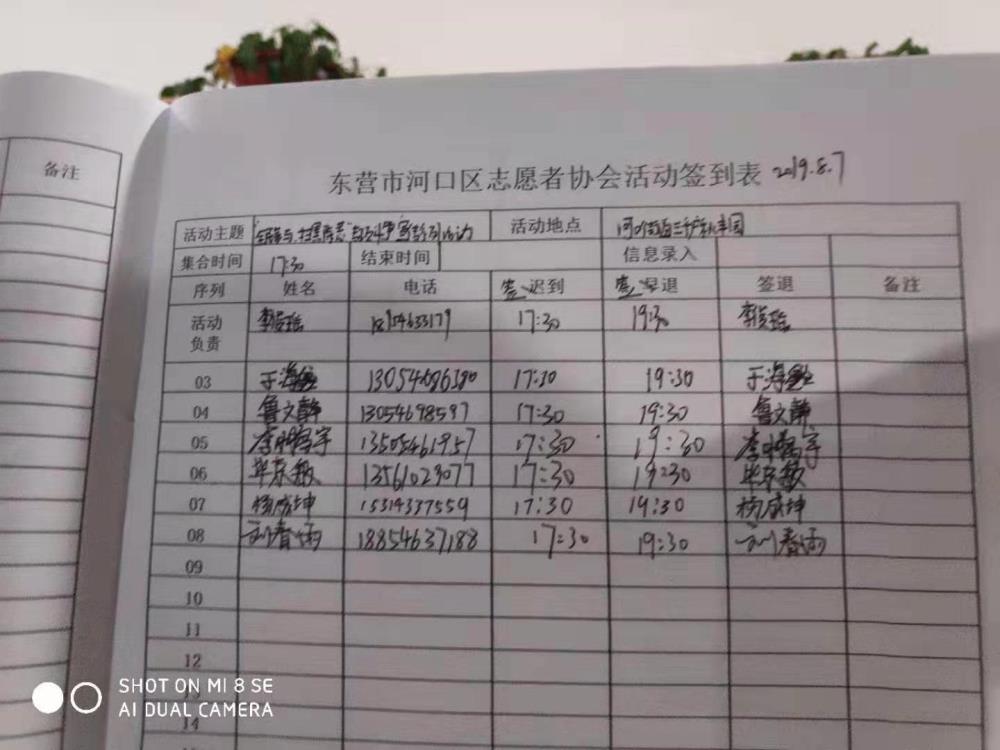 备注
东营市河口区志愿者协会活动签到表 2019.8.7
活动主题 活动地点
集合时间 17:30 结束时间 信息录入
序列 姓名 电话 签 迟到 签 早退 签退 备注
活动负责 17:30 19:30
03 于海 17:30 19:30 于海
04 鲁文静 13054698597 17:30 19:30 鲁文静
05 13505461957 17:30 19:30
06 毕东敏 13561023077 17:30 19:30 毕东敏
07 杨成坤 15314337559 17:30 19:30 杨成坤
08 刘春雨 18854637188 17:30 19:30 刘春雨
09
10
11
12
13
14
SHOT ON MI 8 SE
AI DUAL CAMERA